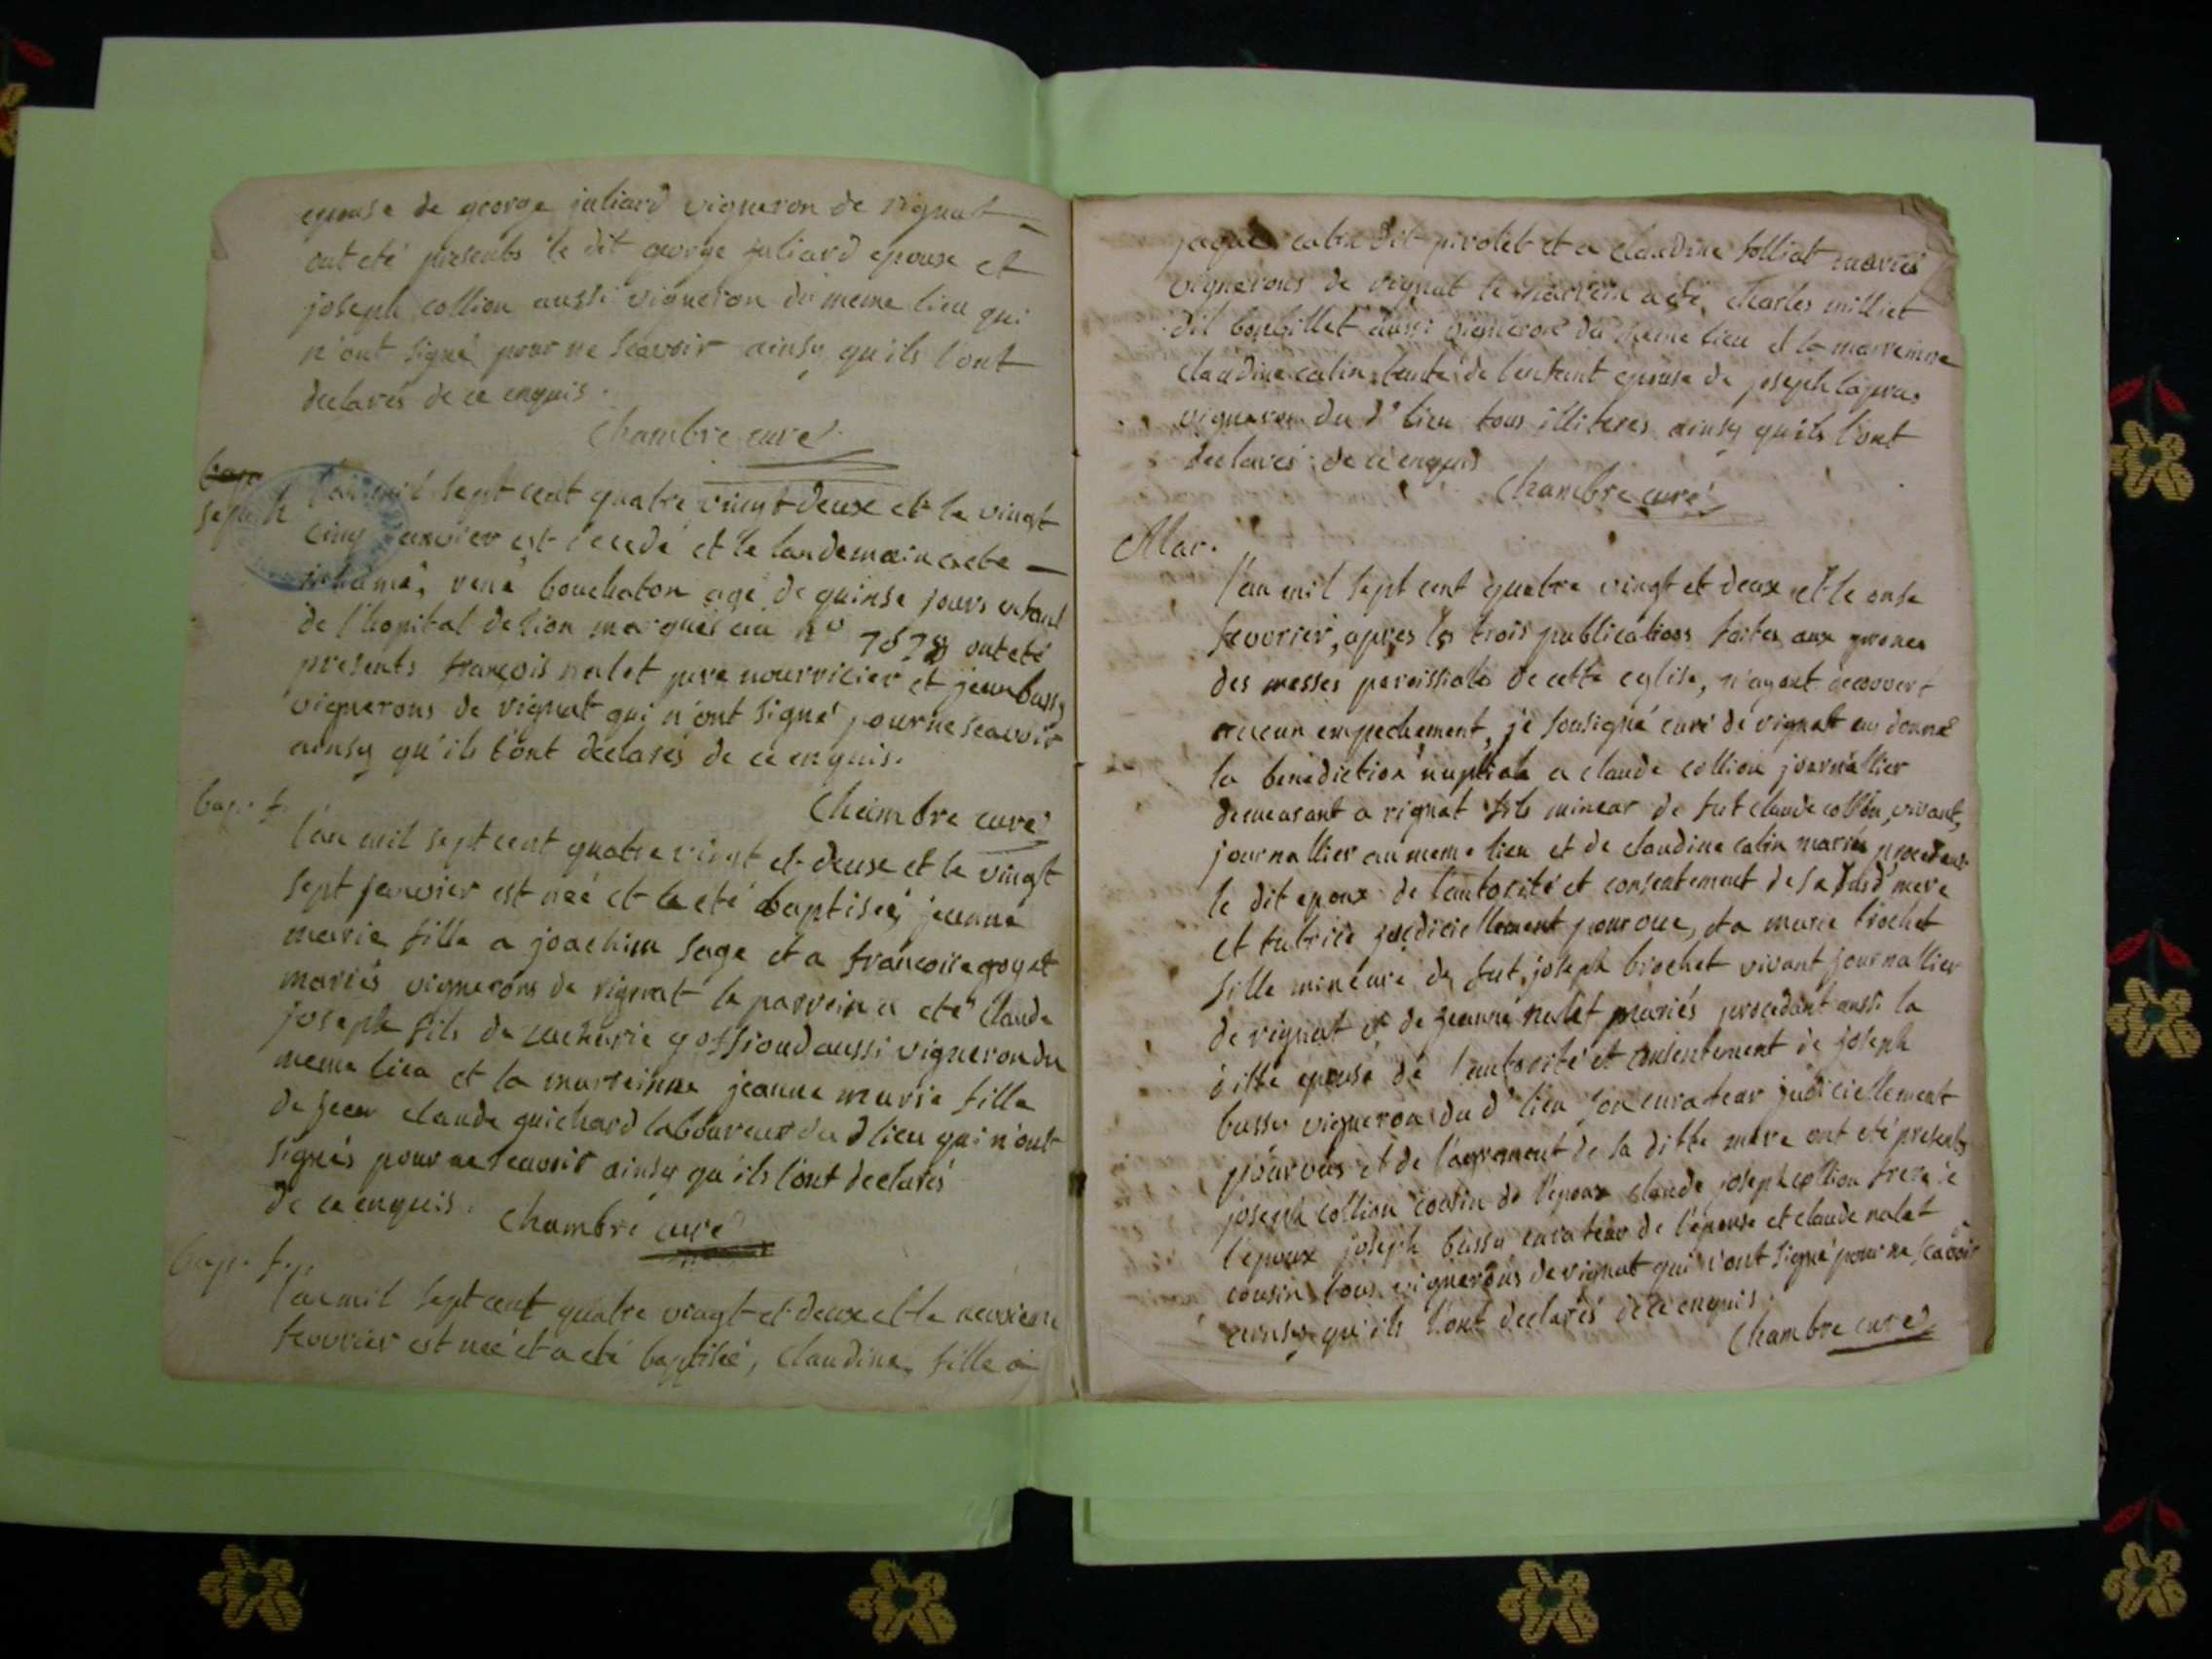 epouse de george juliard vigneron de rignat
ont eté presents le dit george juliard epoux et
joseph collion aussi vigneron du meme lieu qui
n'ont signé pour ne scavoir ainsy qu'ils l'ont
declarés de ce enquis.
Chambre curé
sepult
l'an mil sept cent quatre vingt deux et le vingt
cinq janvier est decedé et le landemain a eté
inhumé, rené bouchaton agé de quinse jours enfant
de l'hopital de lion marqués au n° 7878 ont eté
presents françois nalet pere nourricier et jean bussy
vignerons de rignat qui n'ont signé pour ne scavoir
ainsy qu'ils l'ont declarés de ce enquis.
Chambre curé
bap. f.
l'an mil sept cent quatre vingt et deux et le vingt
sept janvier est neé et a eté baptiseé, jeanne
marie fille a joachim sage et a françoise goyet
mariés vignerons de rignat le parrein a eté claude
joseph fils de zacharie goffioud aussi vigneron du
meme lieu et la marreinne jeanne marie fille
de jean claude guichard laboureur du d lieu qui n'ont
signés pour ne scavoir ainsy qu'ils l'ont declarés
de ce enquis.
Chambre curé
bap. f.
l'an mil sept cent quatre vingt et deux et le neuvieme
fevrier est neé et a eté baptiseé, claudine fille a
jaque calin dit pirolet et a claudine folliat mariés
vignerons de rignat le parrein a eté, charles milliet
dit bonbillet aussi vigneron du meme lieu et la marreinne
claudine calin tante de l'enfant epouse de joseph lapras
vigneron du d° lieu tous illiteres ainsy qu'ils l'ont
declarés de ce enquis
Chambre curé
Mar.
l'an mil sept cent quatre vingt et deux et le onse
fevrier, apres les trois publications faites aux prones
des messes paroissiale de cette eglise, n'ayant decouvert
aucun empechement, je sousigné curé de rignat ay donné
la benediction nuptiale a claude collion journallier
demeurant a rignat fils mineur de fut claude collion, vivant,
journallier au meme lieu et de claudine calin mariés procedant
le dit epoux de l'autorité et consentement de sa dite mere
et tutrice judiciellement pourvue, et a marie brochet
fille mineure de fut joseph brochet vivant journallier
de rignat et de jeanne nalet mariés procedant aussi la
ditte epouse de l'autorité et consentement de joseph
bussy vigneron du d° lieu son curateur judiciellement
pourvus et de l'agrement de sa ditte mere ont eté presents
joseph collion cousin de l'epoux claude joseph collion frere de
l'epoux joseph bussy curateur de l'epouse et claude nalet
cousin tous vignerons de rignat qui n'ont signé pour ne scavoir
ainsy qu'ils l'ont declarés de ce enquis.
Chambre curé